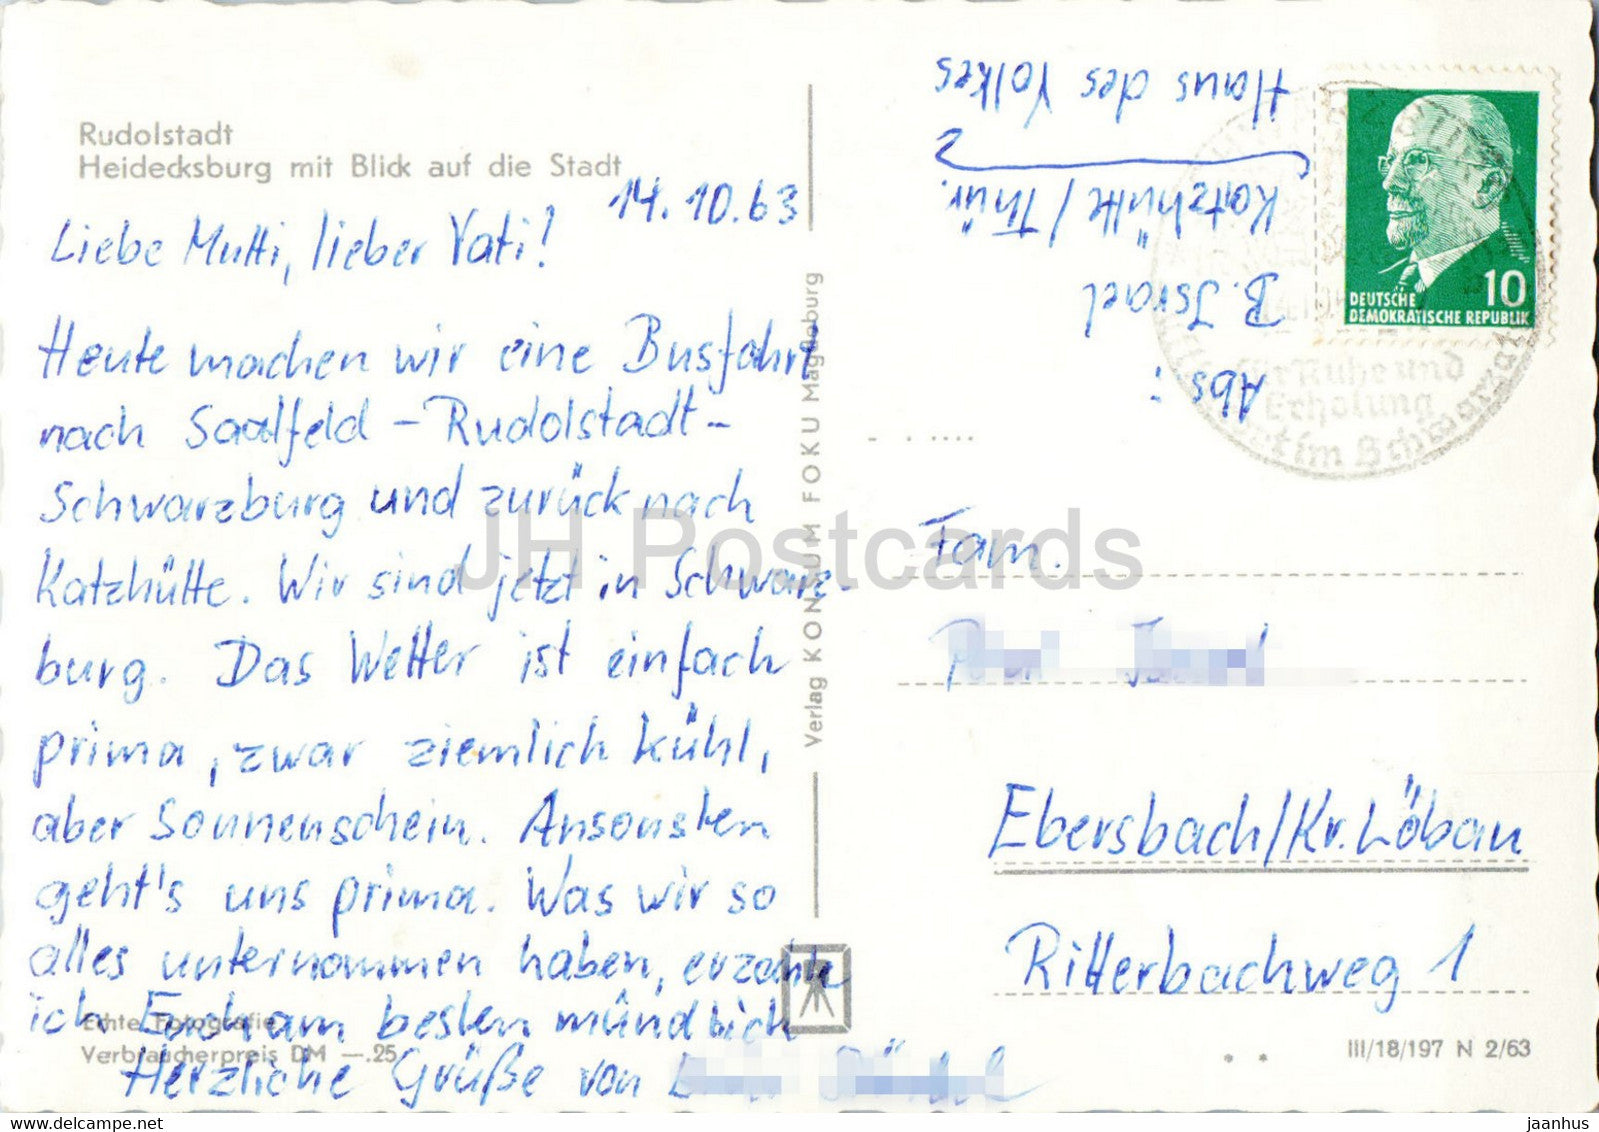 Rudolstadt
Heidecksburg mit Blick auf die Stadt
14.10.63
Liebe Mutti, lieber Vati!
Heute machen wir eine Busfahrt
nach Saalfeld – Rudolstadt –
Schwarzburg und zurück nach
Katzhütte. Wir sind jetzt in Schwarz-
burg. Das Wetter ist einfach
prima, zwar ziemlich kühl,
aber Sonnenschein. Ansonsten
geht's uns prima. Was wir so
alles unternommen haben, erzähle
ich Euch am besten mündlich
Herzliche Grüße von
Echte Fotografie
Verbraucherpreis DM —.25
Verlag KONSUM FOKU Magdeburg
Abs:
B. Israel
Katzhütte/Thür.
Haus des Volkes
10
DEUTSCHE
DEMOKRATISCHE REPUBLIK
für Ruhe und
Erholung
im Schwarzatal
Fam.
Ebersbach/Kr. Löbau
Ritterbachweg 1
III/18/197 N 2/63
JH Postcards
jaanhus